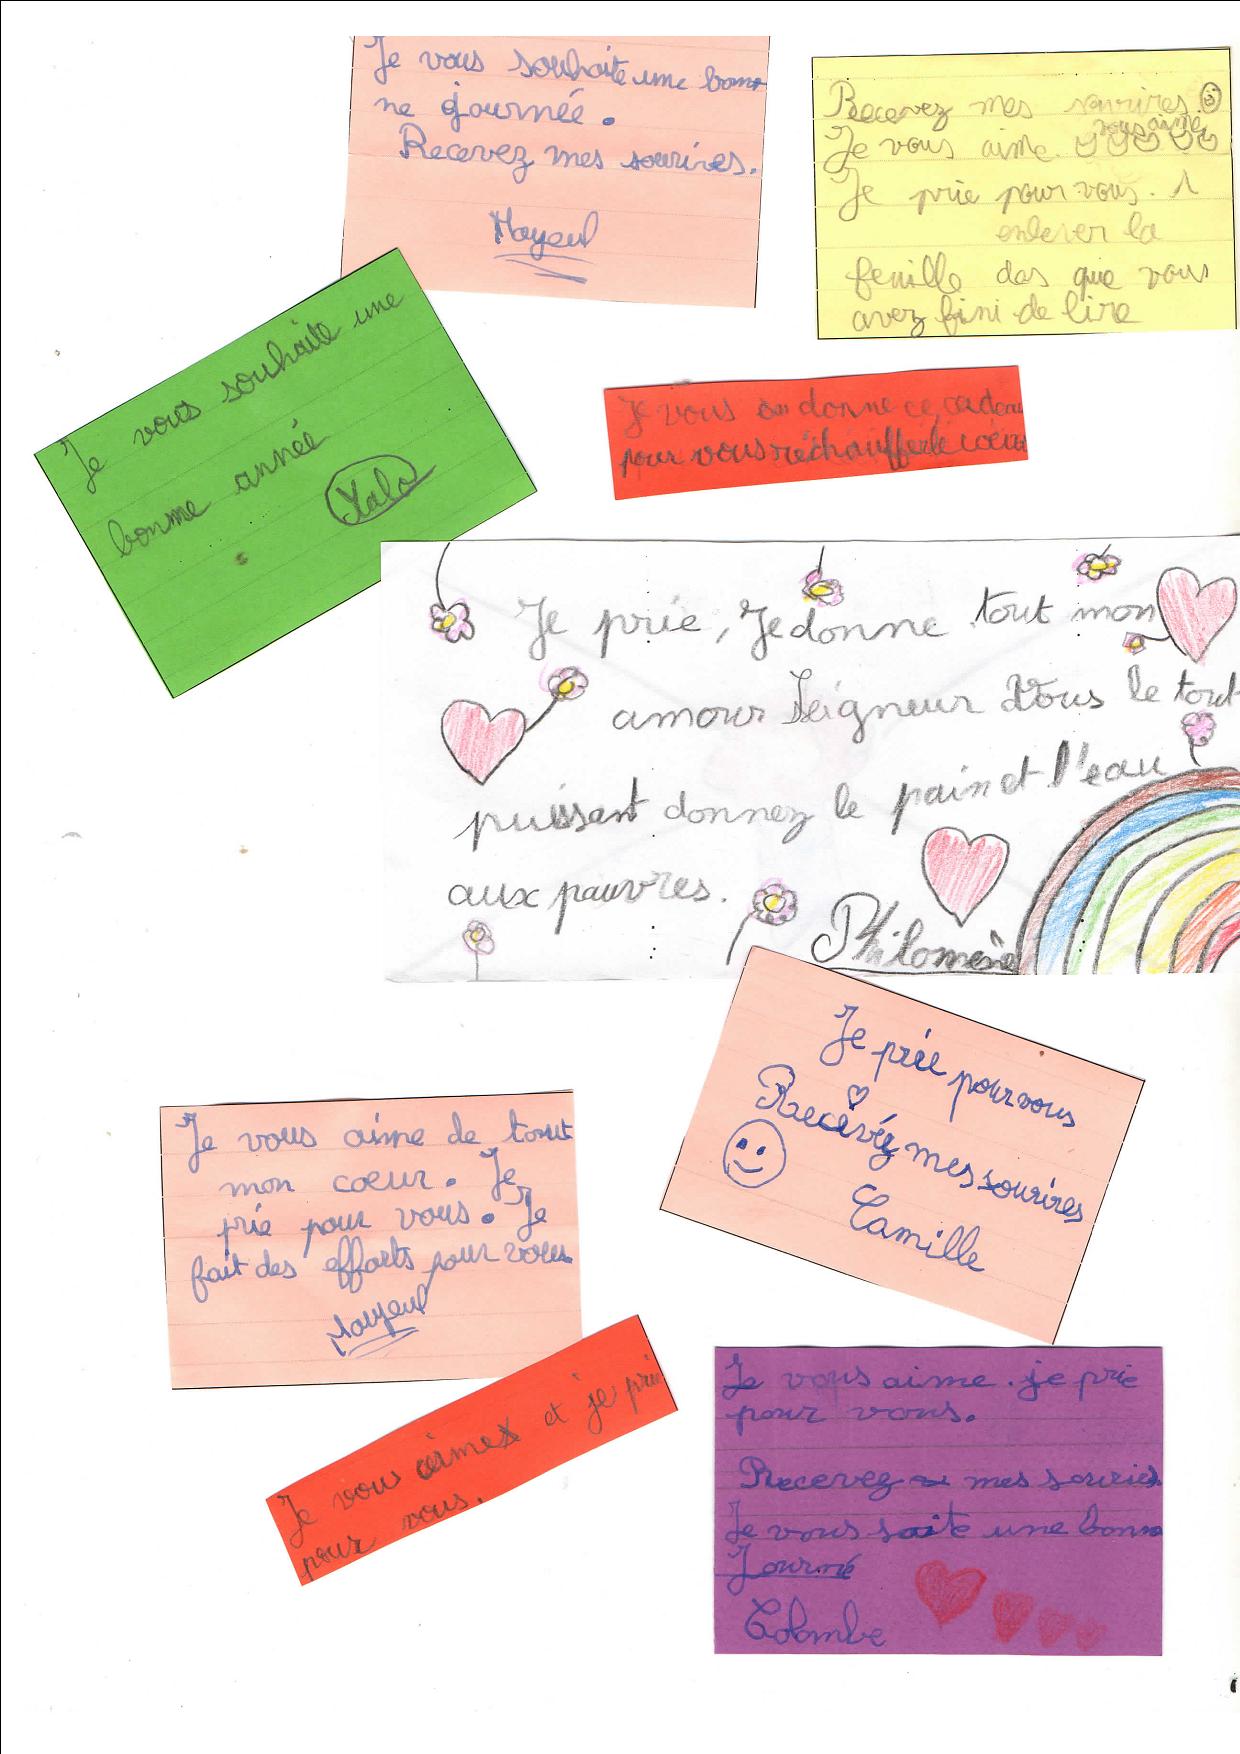 Je vous souhaite une bon-
ne journée.
Recevez mes sourires.
Mayeul
Recevez mes sourires.
vous aime
Je vous aime.
Je prie pour vous. 1
enlever la
feuille das que vous
avez fini de lire
Je vous souhaite une
bonne année
Je vous donne ce cadeau
pour vous réchauffer le coeur
Je prie, Je donne tout mon
amour Seigneur Vous le tout
puissant donnez le pain et l'eau
aux pauvres.
Philomène
Je prie pour vous
Recevéz mes sourires
Camille
Je vous aime de tout
mon coeur. Je
prie pour vous. Je
fait des efforts pour vous
Mayeul
Je vous aime et je prie
pour vous.
Je vous aime. je prie
pour vous.
Recevez mes souries
Je vous saite une bonne
Journé
Colombe